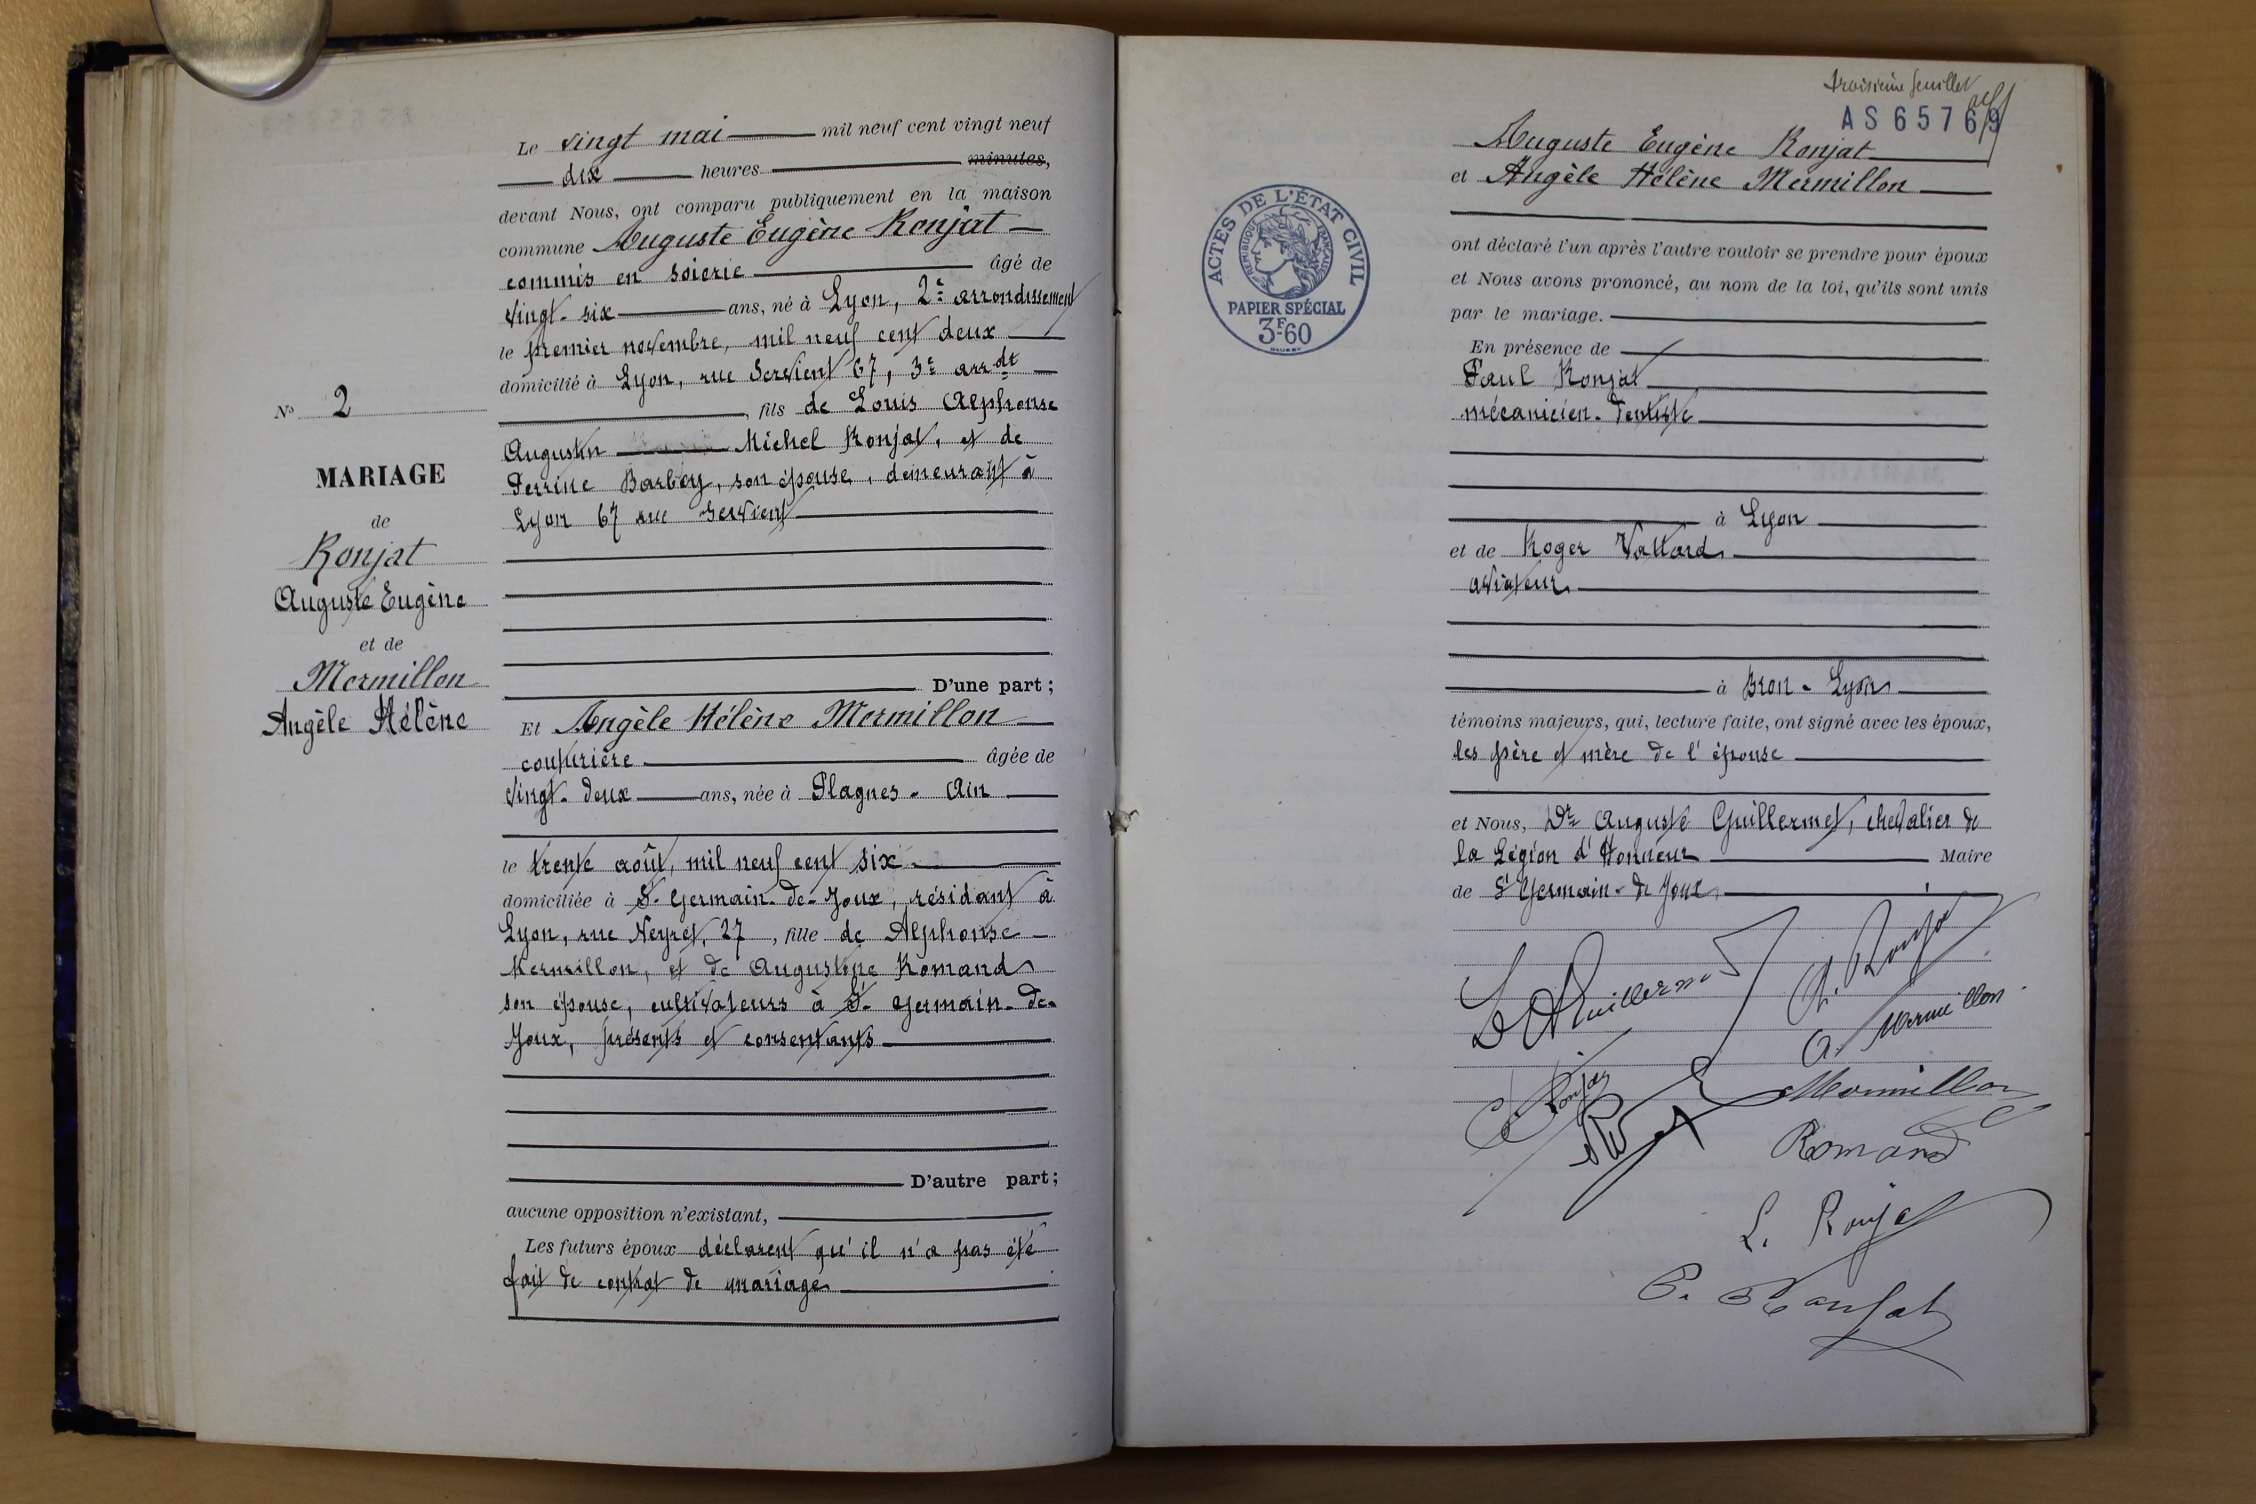 N° 2
MARIAGE
de
Ronjat
Auguste Eugène
et de
Mermillon
Angèle Hélène
Le vingt mai mil neuf cent vingt neuf
dix heures minutes,
devant Nous, ont comparu publiquement en la maison
commune Auguste Eugène Ronjat
commis en soierie âgé de
vingt-six ans, né à Lyon, 2e arrondissement
le premier novembre, mil neuf cent deux
domicilié à Lyon, rue Servient 67, 3e arrdt
, fils de Louis Alphonse
Augustin Michel Ronjat, et de
Perrine Barbey, son épouse, demeurant à
Lyon 67 rue Servient
D'une part ;
Et Angèle Hélène Mermillon
couturière âgée de
vingt-deux ans, née à Plagnes - Ain
le trente août, mil neuf cent six
domiciliée à St-Germain-de-Joux, résidant à
Lyon, rue Neyret, 27, fille de Alphonse
Mermillon, et de Augustine Romand
son épouse, cultivateurs à St-Germain-de-
Joux, présents et consentants
D'autre part ;
aucune opposition n'existant,
Les futurs époux déclarent qu'il n'a pas été
fait de contrat de mariage
troisième feuillet
AS65769
Auguste Eugène Ronjat
et Angèle Hélène Mermillon
ACTES DE L'ÉTAT CIVIL
REPUBLIQUE FRANÇAISE
PAPIER SPÉCIAL
3F.60
ont déclaré l'un après l'autre vouloir se prendre pour époux
et Nous avons prononcé, au nom de la loi, qu'ils sont unis
par le mariage.
En présence de
Paul Ronjat
mécanicien-dentiste
à Lyon
et de Roger Vattard
aviateur
à Bron - Lyon
témoins majeurs, qui, lecture faite, ont signé avec les époux,
les père et mère de l'épouse
et Nous, Dr Auguste Guillermet, chevalier de
la Légion d'Honneur Maire
de St Germain-de Joux
Dr A Guillermet
A. Ronjat
A. Mermillon
Ronjat
Mermillon
Romand
L. Ronjat
P. Ronjat